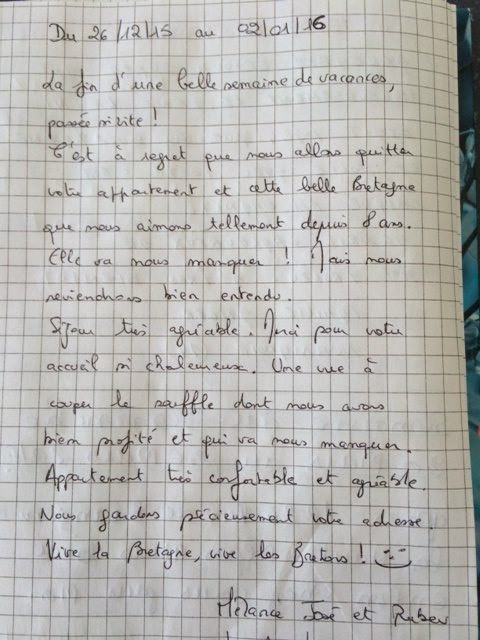 Du 26/12/15 au 02/01/16
La fin d'une belle semaine de vacances,
passée si vite !
C'est à regret que nous allons quitter
votre appartement et cette belle Bretagne
que nous aimons tellement depuis 8 ans.
Elle va nous manquer ! Mais nous
reviendrons bien entendu.
Séjour très agréable. Merci pour votre
accueil si chaleureux. Une vue à
couper le souffle dont nous avons
bien profité et qui va nous manquer.
Appartement très confortable et agréable.
Nous gardons précieusement votre adresse.
Vive la Bretagne, vive les Bretons !
Mélanie José et Ruben